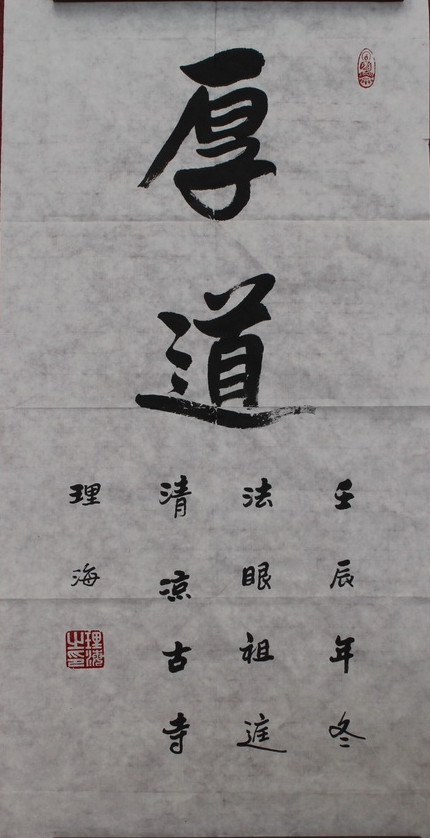 厚道
壬辰年冬
法眼祖庭
清凉古寺
理海
理海之印